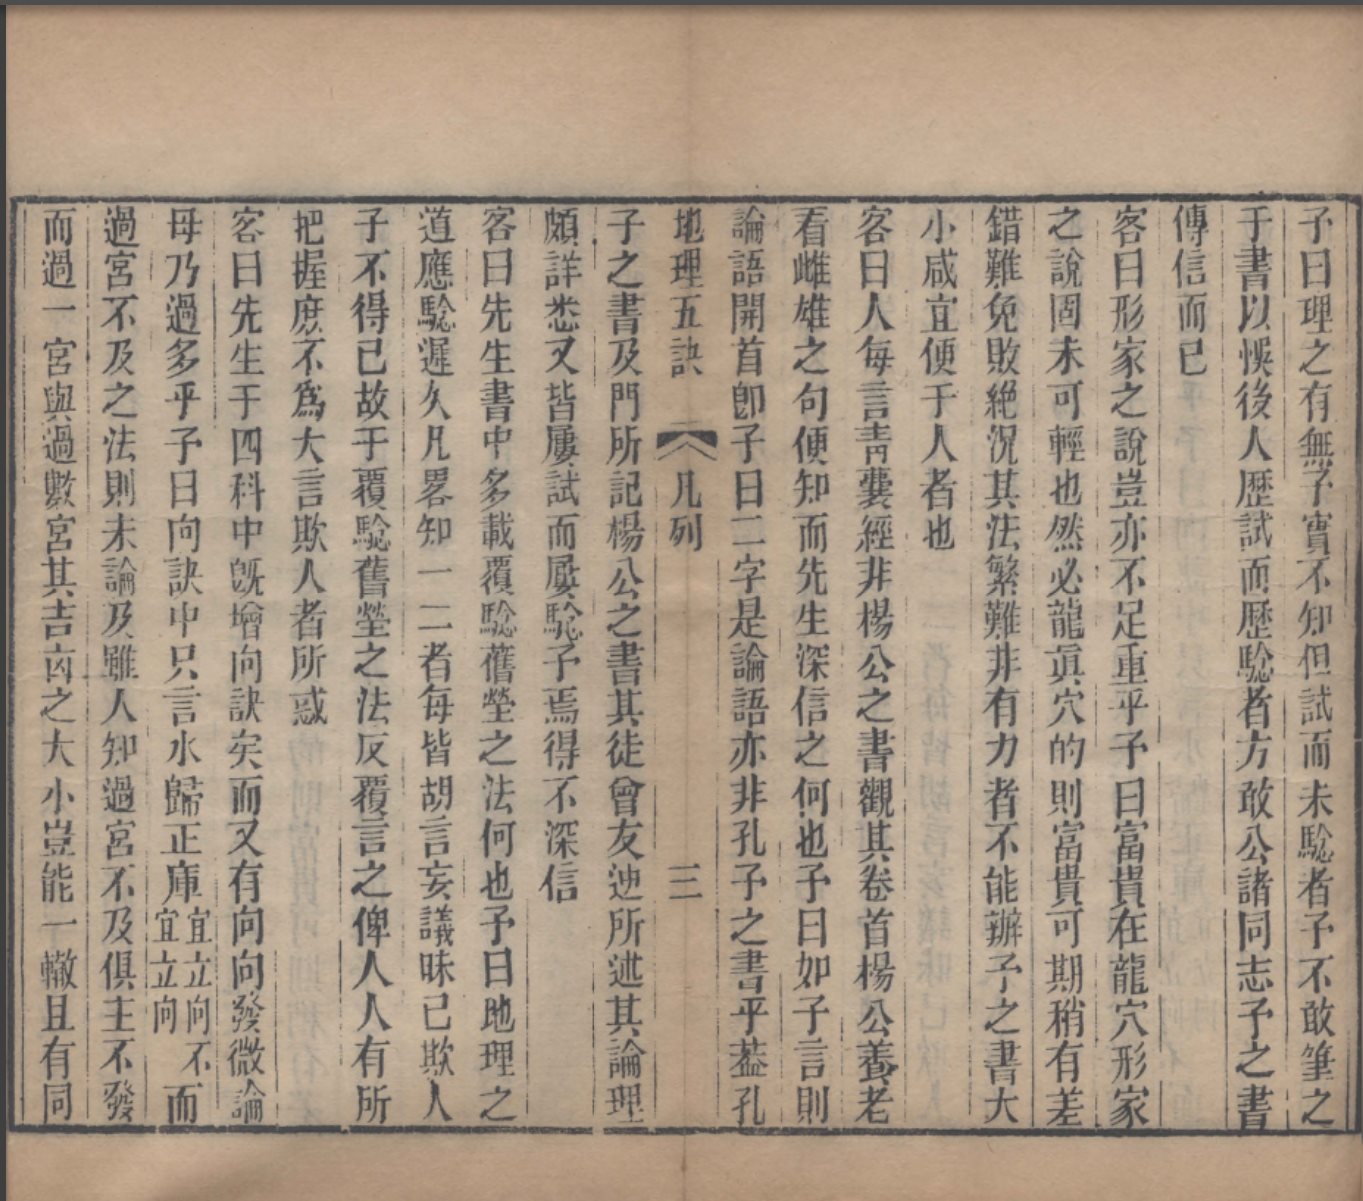 予曰理之有無予實不知但試而未騐者予不敢筆之
于書以悞後人歴試而歴騐者方敢公諸同志予之書
傳信而已
客曰形家之說豈亦不足重乎予曰富貴在龍穴形家
之說固未可輕也然必龍真穴的則富貴可期稍有差
錯難免敗絶況其法繁難非有力者不能辦予之書大
小咸宜便于人者也
客曰人每言青囊經非楊公之書觀其卷首楊公養老
看雌雄之句便知而先生深信之何也予曰如子言則
論語開首卽子曰二字是論語亦非孔子之書乎葢孔
地理五訣 凡列 三
子之書及門所記楊公之書其徒曾友逆所述其論理
頗詳悉又皆屢試而屢騐予焉得不深信
客曰先生書中多載覆騐舊塋之法何也予曰地理之
道應騐遲久凡畧知一二者每皆胡言妄議昧已欺人
予不得已故于覆騐舊塋之法反覆言之俾人人有所
把握庶不為大言欺人者所惑
客曰先生于四科中旣增向訣矣而又有向向發微論
毋乃過多乎予曰向訣中只言水歸正庫宜立向不宜立向而
過宮不及之法則未論及雖人知過宮不及俱主不發
而過一宮與過數宮其吉凶之大小豈能一轍且有同